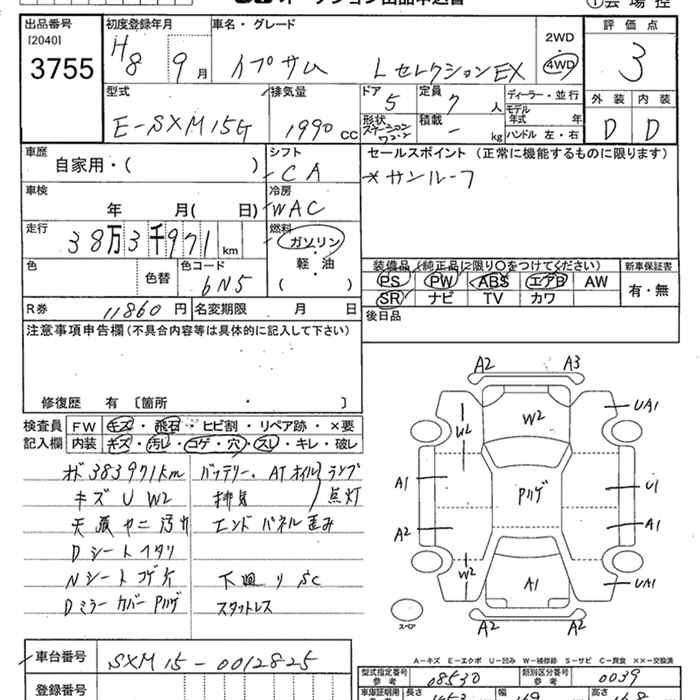 オークション出品申込書 ①会場控
出品番号 初度登録年月 車名・グレード 評価点
[2040] H 2WD
3755 8 9月 イプサム LセレクションEX 4WD 3
型式 排気量 ドア 定員 ディーラー・並行 外装 内装
E-SXM15G 1990cc 5 7人 モデル年式 年 D D
形状 ステーションワゴン 積載 - kg ハンドル 左・右
車歴 シフト セールスポイント (正常に機能するものに限ります)
自家用・( ) CA *サンルーフ
車検 冷房
年 月( 日) WAC
走行 燃料
38万3千971km ガソリン・軽・油 ( )
色 色替 色コード 6N5
装備品(純正品に限り○をつけてください) 新車保証書
PS PW ABS エアB AW 有・無
SR ナビ TV カワ
R券 11860円 名変期限 月 日 後日品
注意事項申告欄(不具合内容等は具体的に記入して下さい)
修復歴 有 [箇所 ・ ]
検査員 FW キズ・飛石・ヒビ割・リペア跡・×要
記入欄 内装 キズ・汚レ・コゲ・穴・スレ・キレ・破レ
オド383971km バッテリー・ATオイルランプ点灯
キズ U W2 排気
天張ヤニ汚れ エンドパネル歪み
Dシートヘタリ
Nシートコゲ穴 下廻りSC
Dミラーカバー Pハゲ スタットレス
A2 A3
W2 W2 UA1
A1 Pハゲ U1
A2 A1
W2 A1 UA1
スペア A2 A2
A-キズ E-エクボ U-凹み W-補修跡 S-サビ C-腐食 XX-交換済
車台番号 SXM15-0012825
型式指定番号 参考 08530 類別区分番号 参考 0039
登録番号
車庫証明用 長さ 453 幅 169 高さ 168